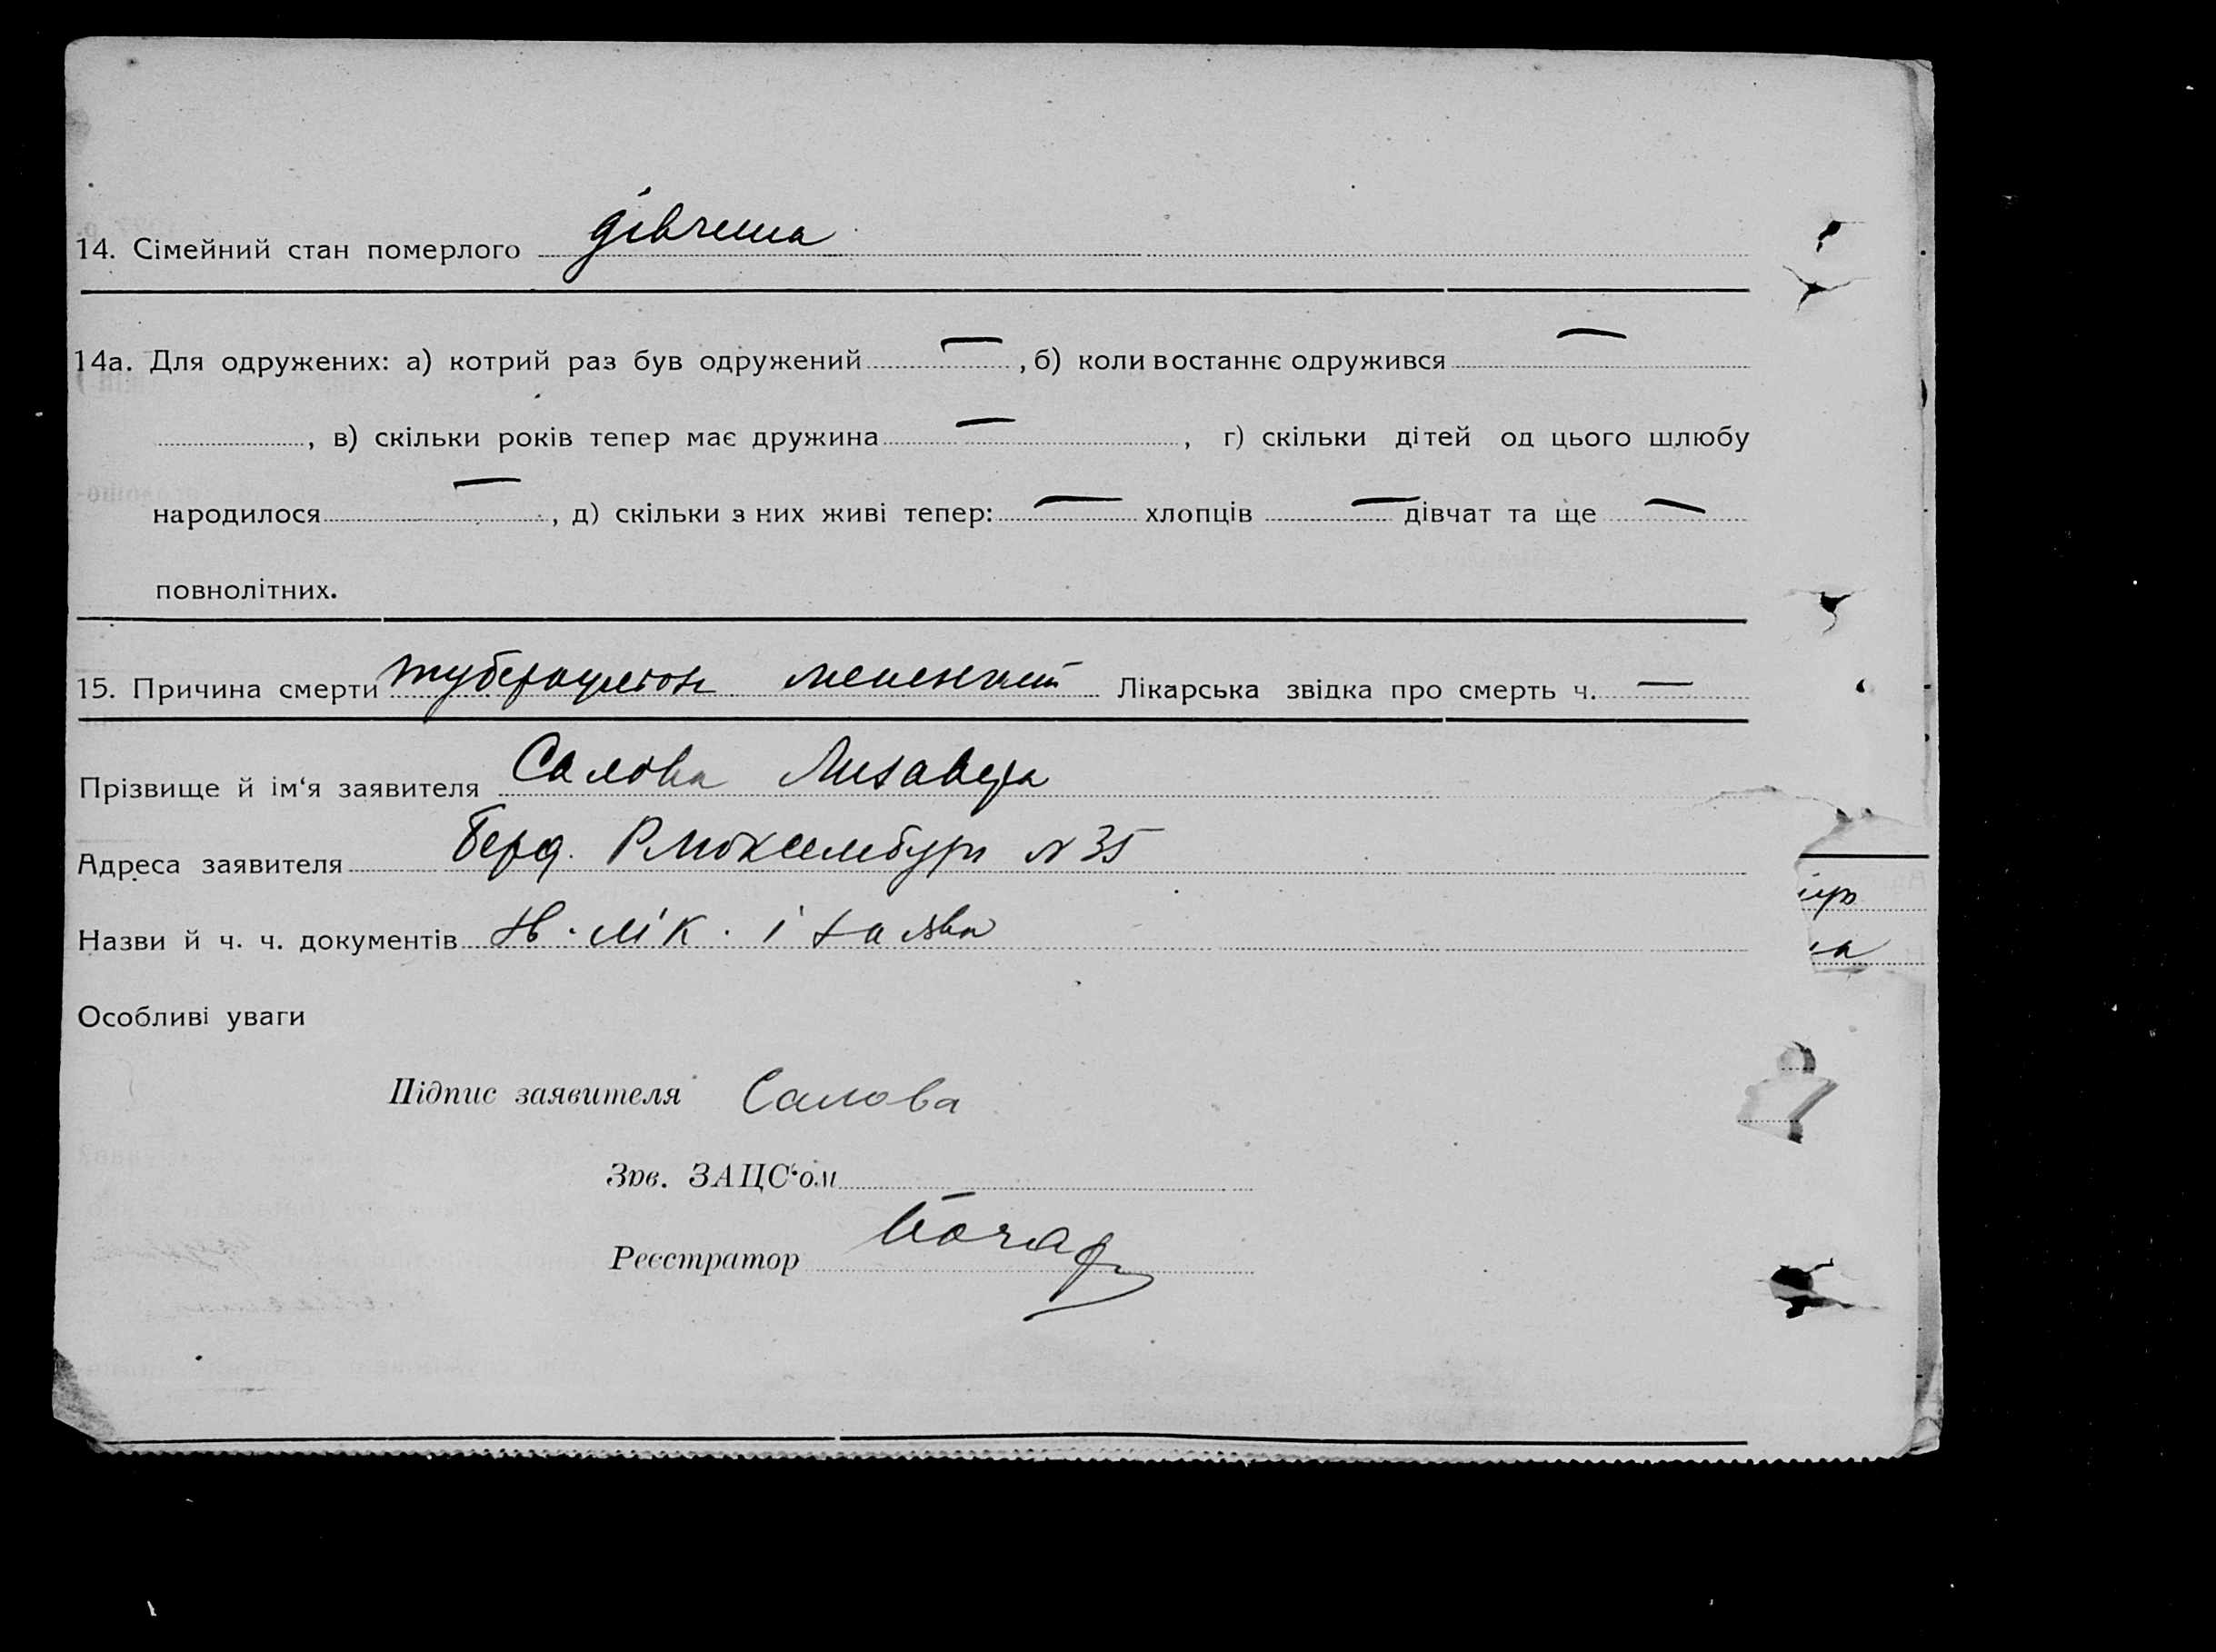 14. Сімейний стан померлого дівчина
14а. Для одружених: а) котрий раз був одружений — , б) коли востаннє одружився —
, в) скільки років тепер має дружина — , г) скільки дітей од цього шлюбу
народилося — , д) скільки з них живі тепер: — хлопців — дівчат та ще —
повнолітних.
15. Причина смерти менензит Лікарська звідка про смерть ч. —
Прізвище й ім‘я заявителя Салова Лизавера
Адреса заявителя Берд. Р Люксембург № 35
Назви й ч. ч. документів лік. і заява
Особливі уваги
Підпис заявителя Салова
Зав. ЗАЦС‘ом
Реєстратор